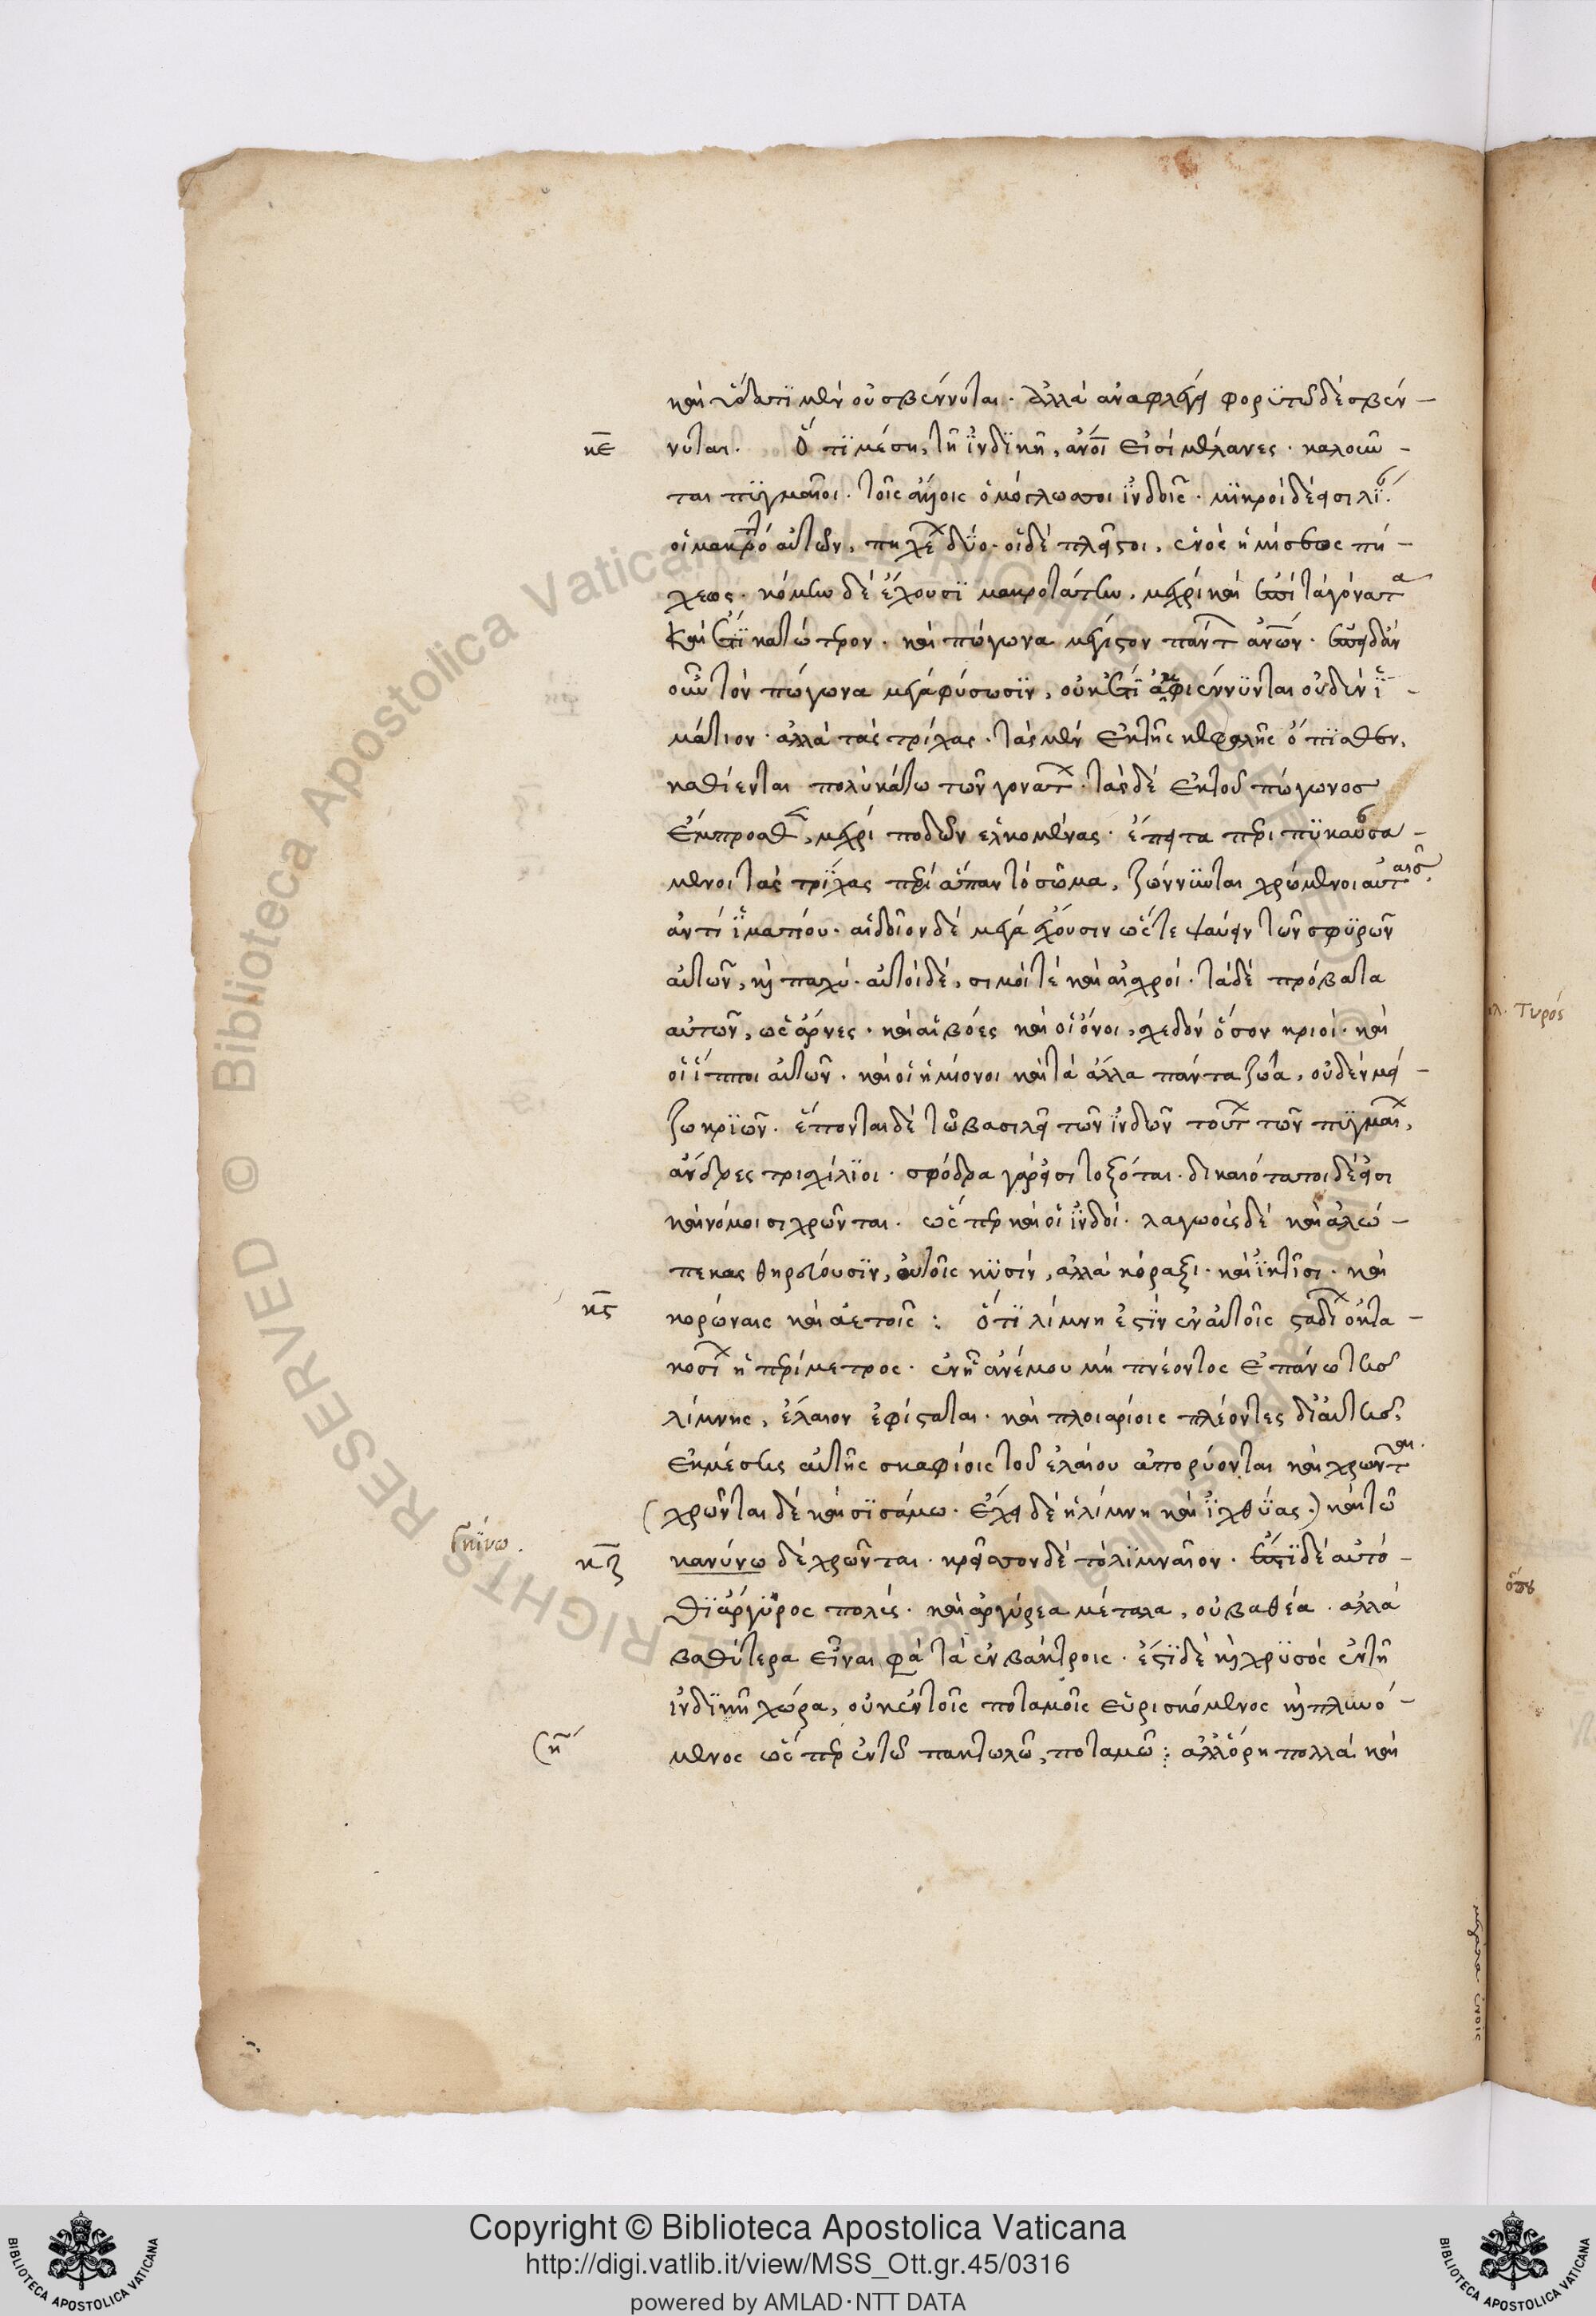 καὶ ὕδατι μὲν οὐ σβέννυται. ἀλλὰ ἀναφλέγει φορυτῶ δὲ σβέν-
κε νυται. Ὅτι μέση τῆ ἰνδικῆ, ἄνοι εἰσὶ μέλανες. καλοῦν-
ται πυγμαῖοι. τοῖς ἄλλοις ὁμόγλωσσοι ἰνδοῖς. μικροὶ δέ εἰσι λί
οἱ μακρότ αὐτῶν, πηχέων δύο. οἱ δὲ πλεῖστοι, ἑνὸς ἡμίσεως πή-
χεως. κόμην δὲ ἔχουσι μακροτάτην, μέχρι καὶ ἐπὶ τὰ γόνατα
καὶ ἔτι κατώτερον. καὶ πώγωνα μέγιστον πάντ ἀνων. ἐπειδὰν
οὖν τὸν πώγωνα μέγα φύσωσιν, οὐκ ἔτι ἀμφιέννυνται οὐδὲν ἱ-
μάτιον. ἀλλὰ τὰς τρίχας. τὰς μὲν ἐκ τῆς κεφαλῆς ὄπισθεν,
καθίενται πολὺ κάτω τῶν γονάτ. τὰς δὲ ἐκ τοῦ πώγωνος
ἔμπροσθ, μέχρι ποδῶν ἑλκομένας. ἔπειτα περιπυκασα-
μενοι τὰς τρίχας περὶ ἅπαν τὸ σῶμα, ζώννυνται χρώμενοι αὐταῖς
ἀντὶ ἱματίου. αἰδοῖον δὲ μέγα ἔχουσιν ὥστε ψαύειν τῶν σφυρῶν
αὐτῶν, καὶ παχύ. αὐτοὶ δὲ, σιμοί τε καὶ αἰσχροί. τὰ δὲ πρόβατα
αὐτῶν, ὡς ἄρνες. καὶ αἱ βόες καὶ οἱ ὄνοι, σχεδὸν ὅσον κριοί. καὶ
οἱ ἵπποι αὐτῶν. καὶ οἱ ἡμίονοι καὶ τὰ ἄλλα πάντα ζῶα, οὐδὲν μεί-
ζω κριῶν. ἕπονται δὲ τῶ βασιλεῖ τῶν ἰνδῶν τούτ τῶν πυγμαί,
ἄνδρες τρισχίλιοι. σφόδρα γάρ εἰσι τοξόται. δικαιότατοι δέ εἰσι
καὶ νόμοισι χρῶνται. ὥσπερ καὶ οἱ ἰνδοί. λαγωοὺς δὲ καὶ ἀλώ-
πεκας θηρεύουσιν, οὐ τοῖς κυσίν, ἀλλὰ κόραξι. καὶ ἰκτῖσι. καὶ
κς κορώναις καὶ ἀετοῖς : Ὅτι λίμνη ἐστὶν ἐν αὐτοῖς σταδί ὀκτα-
κοσί ἡ περίμετρος. ἐν ἧ ἀνέμου μὴ πνέοντος ἐπάνω τῆς
λίμνης, ἔλαιον ἐφίσταται. καὶ πλοιαρίοις πλέοντες δι' αὐτῆς,
ἐκ μέσης αὐτῆς σκαφίοις τοῦ ἐλαίου ἀπορύονται καὶ χρῶνται.
(χρῶνται δὲ καὶ σισάμω. ἔχει δὲ ἡ λίμνη καὶ ἰχθύας.) καὶ τῶ
κικίνω.
κζ καρύνω δὲ χρῶνται. κρεῖσσον δὲ τὸ λιμναῖον. ἔστι δὲ αὐτό-
θι ἄργυρος πολύς. καὶ ἀργύρεα μέταλα, οὐ βαθέα. ἀλλὰ
βαθύτερα εἶναι φα τὰ ἐν βάκτροις. ἔστι δὲ καὶ χρυσὸς ἐν τῆ
ἰνδικῆ χώρα, οὐκ ἐν τοῖς ποταμοῖς εὑρισκόμενος καὶ πλυνό-
κη μενος ὥσπερ ἐν τῶ πακτωλῶ ποταμῶ : ἀλλ' ὄρη πολλὰ καὶ
μεγάλα ἐν οἷς
Τυρός
ὅπου
Copyright © Biblioteca Apostolica Vaticana
http://digi.vatlib.it/view/MSS_Ott.gr.45/0316
powered by AMLAD·NTT DATA
BIBLIOTECA APOSTOLICA VATICANA
BIBLIOTECA APOSTOLICA VATICANA